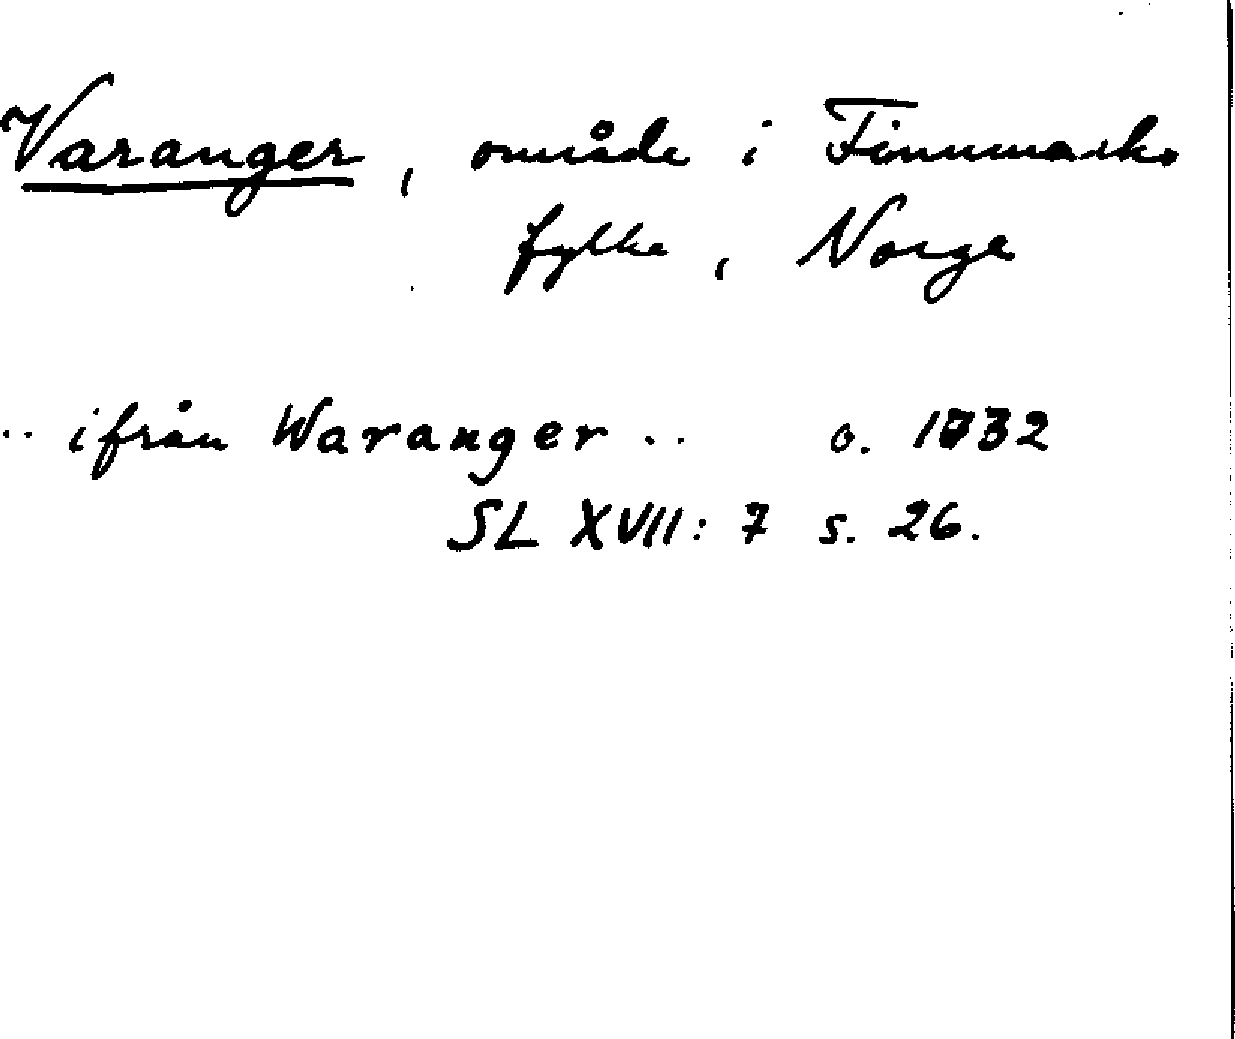 Varanger, område i Finnmarks
fylke, Norge
.. ifrån Waranger .. o. 1732
SL XVII: 7 s. 26.